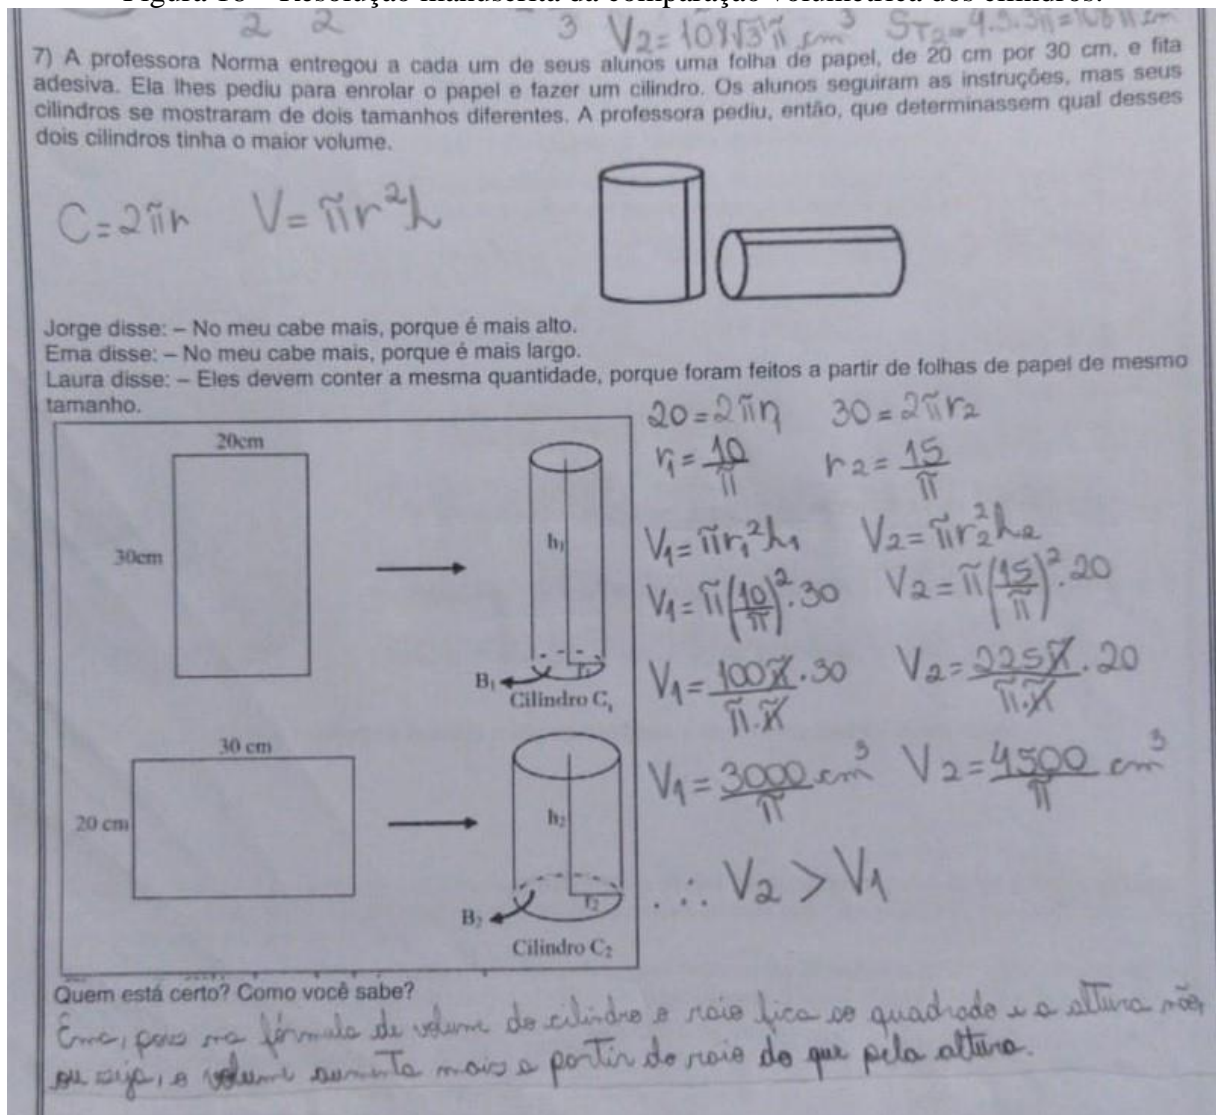 2 2 3 V2=108√3π cm³ ST2=
7) A professora Norma entregou a cada um de seus alunos uma folha de papel, de 20 cm por 30 cm, e fita
adesiva. Ela lhes pediu para enrolar o papel e fazer um cilindro. Os alunos seguiram as instruções, mas seus
cilindros se mostraram de dois tamanhos diferentes. A professora pediu, então, que determinassem qual desses
dois cilindros tinha o maior volume.
C=2πr V=πr²h
Jorge disse: – No meu cabe mais, porque é mais alto.
Ema disse: – No meu cabe mais, porque é mais largo.
Laura disse: – Eles devem conter a mesma quantidade, porque foram feitos a partir de folhas de papel de mesmo
tamanho.
20=2πr1 30=2πr2
20cm
r1=10/π r2=15/π
30cm
h1
V1=πr1²h1 V2=πr2²h2
V1=π(10/π)².30 V2=π(15/π)².20
r1
B1
Cilindro C1
V1=100π/π.π.30 V2=225π/π.π.20
30 cm
20 cm
h2
V1=3000/π cm³ V2=4500/π cm³
∴ V2 > V1
r2
B2
Cilindro C2
Quem está certo? Como você sabe?
Ema, pois na fórmula de volume do cilindro o raio fica ao quadrado e a altura não,
ou seja, o volume aumenta mais a partir do raio do que pela altura.